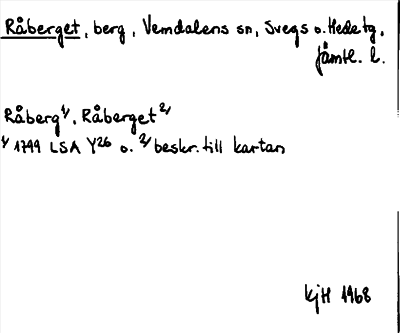 Råberget, berg, Vemdalens sn, Svegs o. Hede tg,
Jämtl. l.
Råberg 1/, Råberget 2/
1/ 1799 LSA Y26 o. 2/ beskr. till kartan
KjH 1968